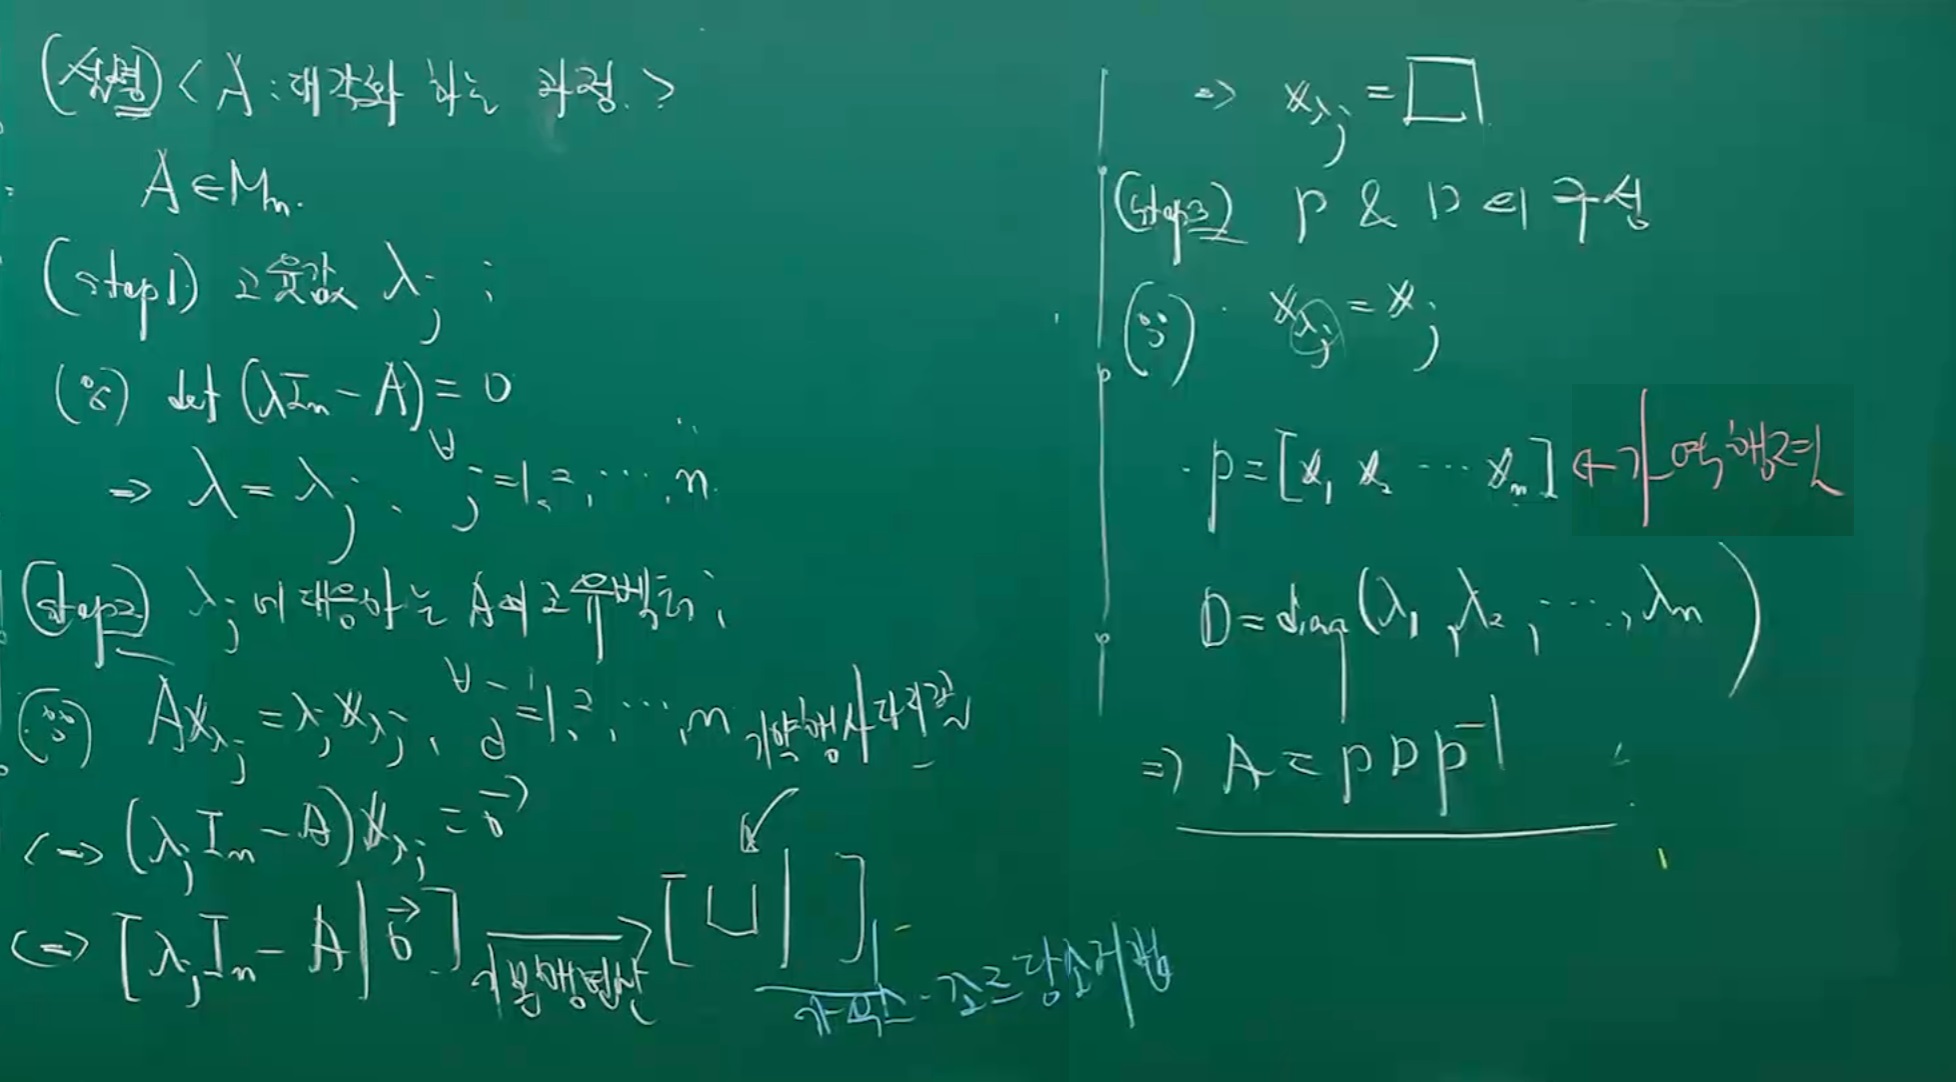 (설명) < A : 대각화 하는 과정. >
A ∈ Mn.
(step1) 고유값 λj ;
(∵) det (λIn - A) = 0
⇒ λ = λj. ∀j = 1, 2, ⋯, n.
(step2) λj에 대응하는 A의 고유벡터 ;
(∵) Axλj = λj xλj, ∀j = 1, 2, ⋯, n
기약행사다리꼴
⇔ (λj In - A) xλj = 0⃗
⇔ [λj In - A | 0⃗] → [ U | ]
기본행연산
가우스-조르당소거법
⇒ xλj = □
(step3) P & D의 구성
(∵) · xλj = xj
· P = [x1 x2 ⋯ xn] ← 가역행렬
D = diag (λ1, λ2, ⋯, λn)
⇒ A = PDP⁻¹